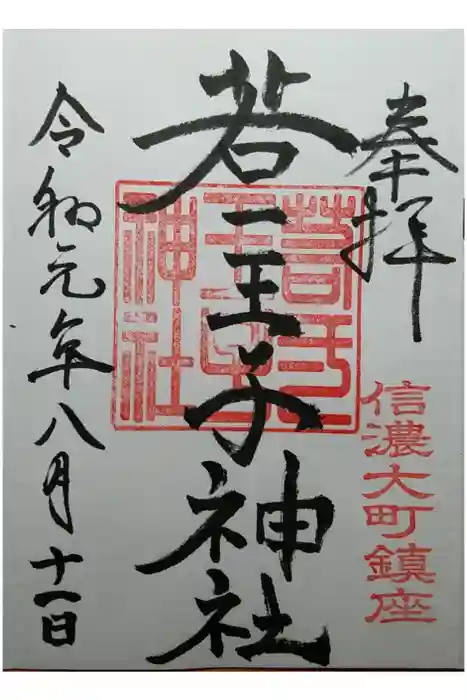 奉拝
信濃大町鎮座
若一王子神社
若一王子神社
令和元年八月十一日